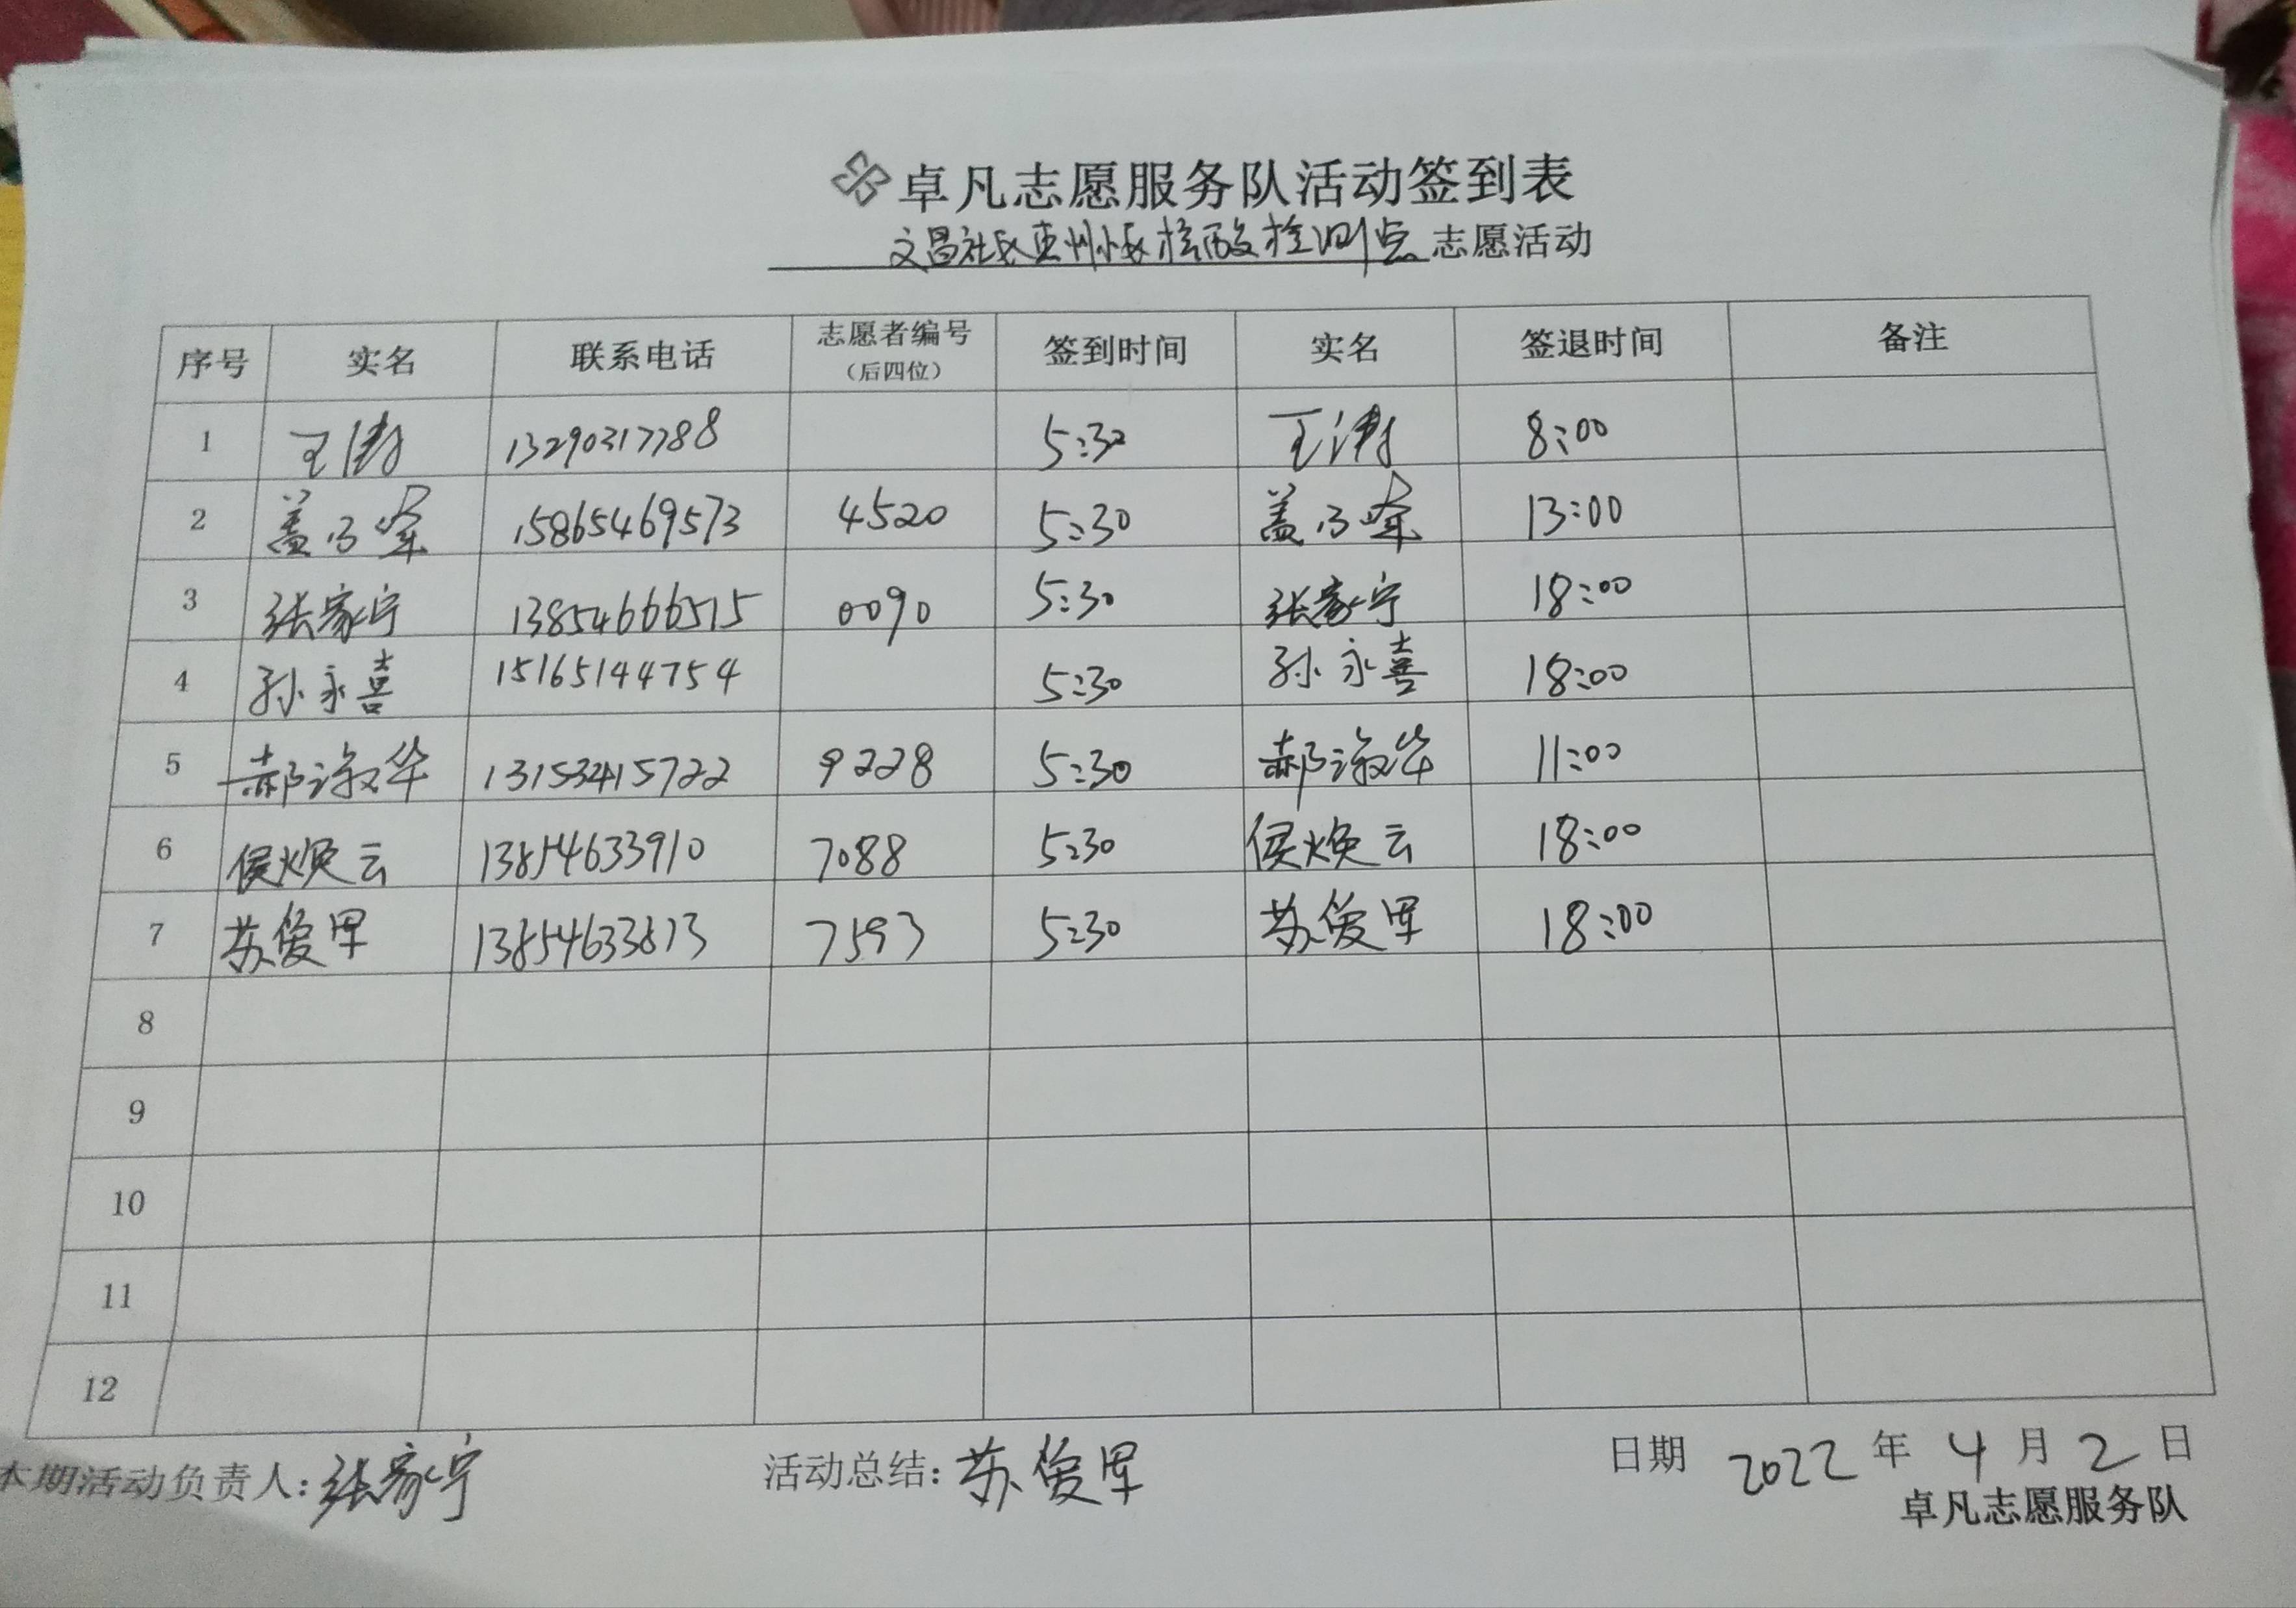 卓凡志愿服务队活动签到表
文昌社区惠州小区核酸检测点 志愿活动
序号 实名 联系电话 志愿者编号（后四位） 签到时间 实名 签退时间 备注
1 王涛 13290317788 5:30 王涛 8:00
2 盖乃峰 15865469573 4520 5:30 盖乃峰 13:00
3 张家宁 13854666515 0090 5:30 张家宁 18:00
4 孙永喜 15165144754 5:30 孙永喜 18:00
5 郝淑华 13153415722 9228 5:30 郝淑华 11:00
6 侯焕云 13854633910 7088 5:30 侯焕云 18:00
7 苏俊军 13854633813 7593 5:30 苏俊军 18:00
8
9
10
11
12
本期活动负责人：张家宁 活动总结：苏俊军 日期 2022 年 4 月 2 日
卓凡志愿服务队